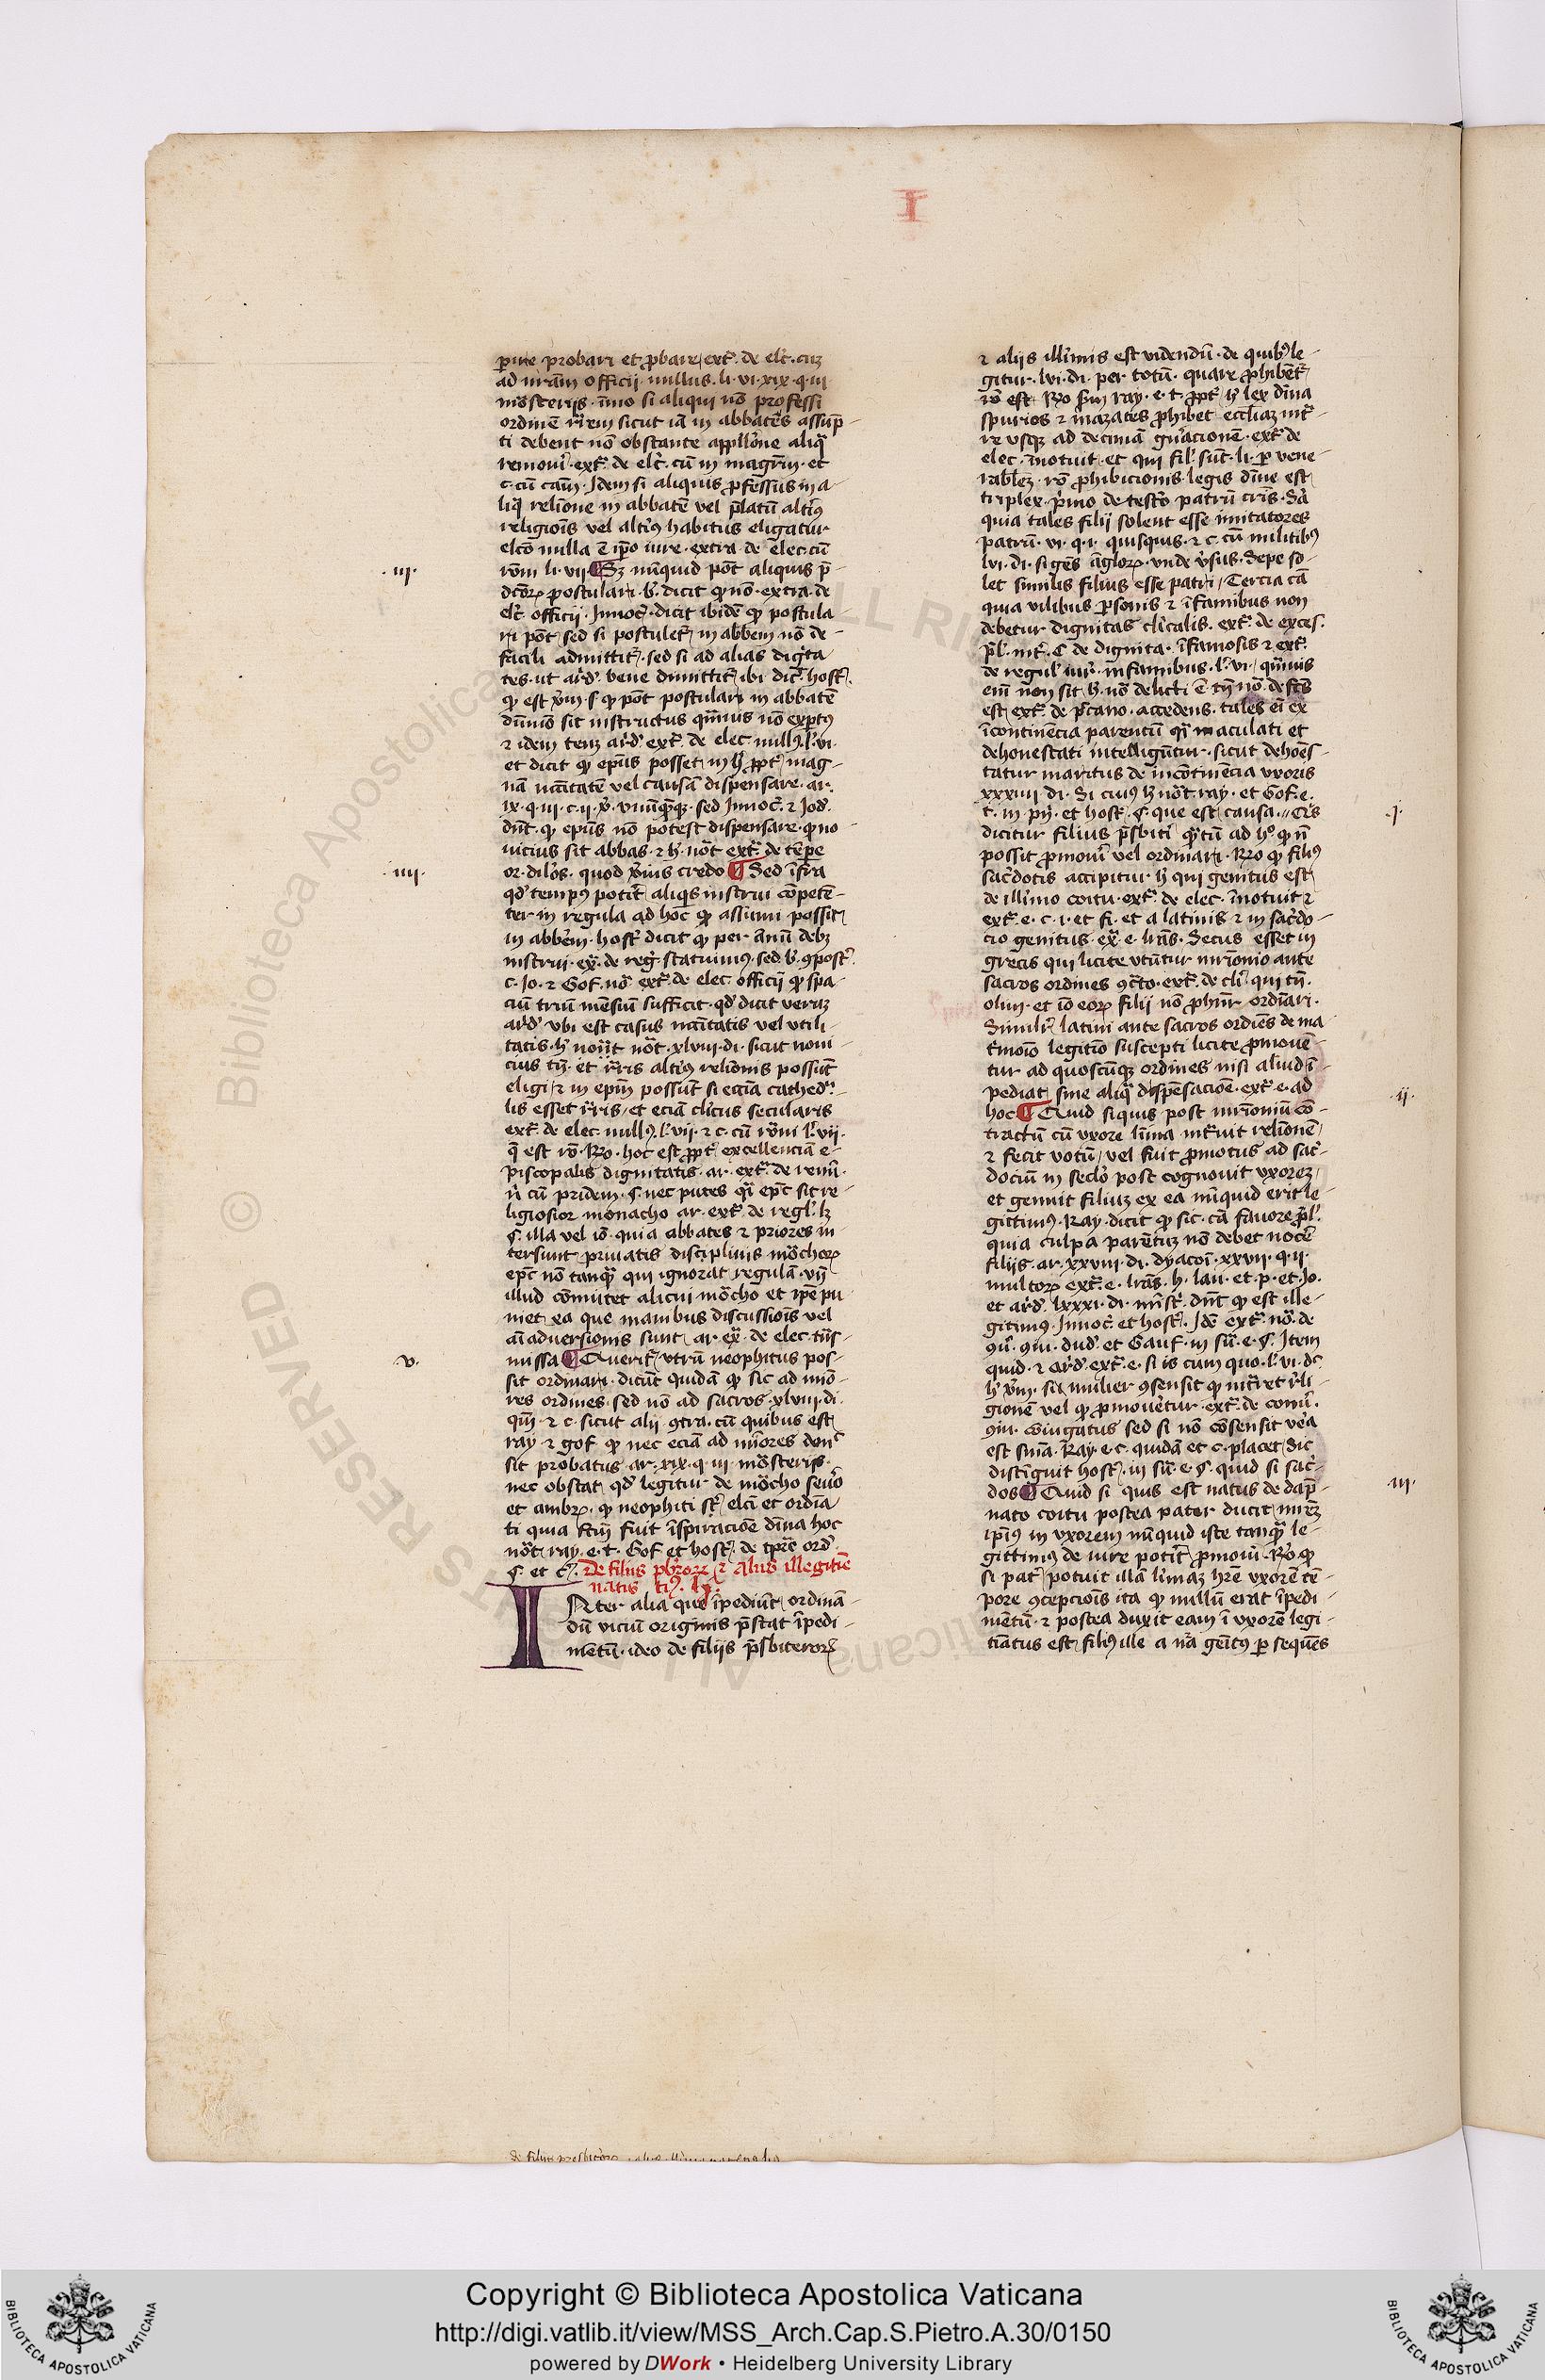 I
pine probari et ꝓbare ext͛. de elc̄. cuz
ad nr̄am officii. nullus. li. vi. xix. q. iii
mōsteriis. īmo si aliqui nō professi
ordinē
ti debent nō obstante appllōne aliq̄
remoui. ext͛. de elc̄. cū in magr̄m. et
c. cū cam̄. Idem si aliquis ꝓfessus in a-
religiōis vel altiꝰ habitus eligatur
elcō nulla ē ip̄o iure. extra. de elec. cū
.iii.
rōm li. vii ¶ Sz nūquid pōt aliquis p̄-
dcōꝝ postulari. b͛. dicit ꝙ nō. extra. de
elc̄. officii. Innoc̄. dicit ibidē ꝙ postula-
ri pōt sed si postulet͛ in abbem nō de-
facili admittit͛. sed si ad alias digīta-
tes. ut ar̄d. bene dimittit͛ ibi dic̄. host͛.
ꝙ est ꝟm. s. ꝙ pōt postulari in abbatē
dūmō sit instructus qm̄uis nō exꝑtꝰ
⁊ idem tenz ar̄d͛. ext͛. de elec. nullꝰ. li. vi.
et dicit ꝙ ep̄us posset in h͛ ꝓpt͛ mag-
nā nc̄citatē vel causā dispensare. ar.
ix. q. iii. c. ii. ꝟ. vnūq̄mq̄. sed Innoc̄. ⁊ Jod͛.
dn̄t. ꝙ ep̄us nō potest dispensare. ꝙ no-
uicius sit abbas. ⁊ h͛. nōt ext͛. de tēpe
.iiii.
or. dilōs. quod ꝟius credo ¶ Sed īfra
qd͛ tempꝰ potit͛ aliqis instrui cōpetē-
ter in regula ad hoc ꝙ assumi possit
in abbēm. host͛ dicit ꝙ per annū debz
instrui. ex͛. de reg͛. statuimꝰ. sed. b͛. ꝯpost͛.
c. Jo. ⁊ Gof. nō. ext͛. de elec. officii ꝙ spa-
ciū triū mēsiū sufficit. qd͛ dicit veruz
ar̄d͛. vbi est casus nc̄citatis vel vtili-
tatis. h͛ nouit nōt. xlviii. di. sicut noui-
cius tn̄. et
eligi ⁊ in epm̄ possūt si eciā cathed͛a-
lis esset
ext͛. de elec. nullꝰ. li. vii. ⁊ c. cū rōni li. vii.
q̄ est rō. Rō. hoc est ꝓpt͛ excellenciā e-
piscopalis dignitatis. ar. ext͛. de renū.
nī cū pridem. §. nec putes qī epc̄ sit re-
ligiosior monacho ar. ext͛. de regl͛. lz
§. illa vel iō. quia abbates ⁊ priores in-
tersunt priuatis disciplinis mōchoꝝ
epc̄ nō tanq̄ qui ignorat regulā. vn̄
illud cōmittet alicui mōcho et ipē pu-
niet ea que manibus discussiōis vel
aīaduersionis sunt ar. ex͛. de elec. tn̄s-
.v.
missa ¶ Querit͛ vtrū neophitus pos-
sit ordinari. dicūt quidā ꝙ sic ad mīo-
res ordines. sed nō ad sacros. xlviii. di.
qm̄. ⁊ c. sicut alij ꝯtra. cū quibus est
ray ⁊ gof. ꝙ nec eciā ad mīores donc
sit probatus. ar. xix. q. iii. mōsteriis.
nec obstat qd͛ legitur de mōcho seuō
et ambꝛo. ꝙ neophiti st͛ elcī et ordīa-
ti quia fcm̄ fuit īspiracōe dīna hoc
nōt ray. e. t. Gof et host͛. de tpr̄e ord͛.
§. et c. De filiis pb͛roꝝ ⁊ aliis illegitīe
natis ti. lx.
INter alia que īpediūt ordinā-
dū viciū originis p̄stat īpedi-
mētū. ideo de filijs p̄sbiteroꝝ
⁊ alijs illīmis est videndū. de quibꝰ le-
gitur. lvi. di. per totū. quare ꝓhibēt͛
rō est. Rō sm̄ ray. e. t. ꝓpt͛ h͛ lex dīna
spurios ⁊ mazares ꝓhibet eccl̄iaz int͛-
re usqz ad decimā gn̄acionē. ext͛. de
elec. īnotuit. et qui fil͛ sūt. li. ꝑ vene-
rablēz. rō ꝓhibicionis legis dīne est
triplex. p̄mo detest͛o patrū crīs. Scda
quia tales filij solent esse imitatores
patrū. vi. q. i. quisquis. ⁊ c. cū militibꝰ
lvi. di. si gēs āgloꝝ. vnde ꝟsus. Sepe so-
let similis filius esse patri. Tercia cā
quia vilibus ꝑsonis ⁊ īfamibus non
debetur dignitas cl̄icalis. ext͛. de exces.
p̄l͛. int͛. C de dignita. īfamosis ⁊ ext͛.
de regul͛ iur͛. infamibus. li. vi. qm̄uis
em̄ non sit h͛. nō delicti ē tn̄ nō. defc̄us
est ext͛. de p̄cario. accedens. tales ei ex
īcontinēcia parentū qī maculati et
dehonestati intelligūtur. sicut dehoēs-
tatur maritus de incōtinēcia vxoris
xxxiiii di. Si cuiꝰ h͛ nōt. ray. et Gof. e.
.j.
t. in pn̄. et host͛. §. que est causa. = Crīs
dicitur filius p̄sbiti q̄tū ad hꝰ ꝙ n̄
possit ꝓmoui vel ordinari. Rō ꝙ filiꝰ
sac͛dotis accipitur h͛ qui genitus est
de illīmo coitu. ext͛. de elec. īnotuit ⁊
ext͛. e. c. i. et fi. et a latinis ⁊ in sac͛do-
cio genitus. ex͛. e. lr̄as. Secus esset in
grecis qui licite vtūtur mr̄ionio ante
sacros ordines ꝯt͛cto. ext͛. de cl̄i. qui tn̄.
olim. et iō eoꝝ filii nō ꝓhint͛ ordīari.
Simil͛r latini ante sacros ordīes de ma-
t͛moīo legitīo suscepti licite ꝓmouē-
tur ad quoscūqz ordines nisi aliud ī-
pediat sine aliq̄ dispēsacione. ext͛. e. ad
.ij.
hoc ¶ Quid siquis post mr̄ioniū cō-
tractū cū vxore lt͛ima int͛uit reliōnē
⁊ fecit votū vel fuit ꝓmotus ad sac͛-
dociū in seclo post cognouit vxorez
et genuit filiuz ex ea nūquid erit le-
gittimꝰ. Ray. dicit ꝙ sic. cā fauore ꝓl͛.
quia culpa parētuz nō debet nocē
filijs. ar. xxviii. di. dyacoī. xxvii. q. ii.
multoꝝ ext͛. e. lr̄as. h. lau. et. p. et Jo.
et ar̄d͛. lxxxi. di. mīst͛. dn̄t ꝙ est ille-
gitimꝰ. Innoc̄. et host͛. Idē ext͛. nō. de
quid. ⁊ ar̄d͛. ext͛. e. si is cum quo. li. vi. dc̄
h͛ ꝟm. si mulier ꝯsensit ꝙ int͛ret r̄li-
gionē vel ꝙ ꝓmouētur. ext͛. de conu͛.
ꝯiu. cōiugatus sed si nō cōsensit ve͛a
est sn̄ia. Ray. e. c. quidā et c. placet. Sic
distīguit host͛. in sū. e. §. quid si sac͛-
.iii.
dos ¶ Quid si quis est natus de dāp̄-
nato coitu postea pater ducit mr̄ez
ipīꝰ in vxorem nūquid iste tanq̄ le-
gittimus de iure potit͛ ꝓmoui. Rō. ꝙ
si pat͛ potuit illā lt͛imaz hr̄e vxorē tē-
pore ꝯcepciōis ita ꝙ nullū erat īpedi-
mētū. ⁊ postea duxit eam ī vxorē legi-
tīatus est filiꝰ ille a nr̄a geītꝰ ꝑ sequēs
Copyright © Biblioteca Apostolica Vaticana
http://digi.vatlib.it/view/MSS_Arch.Cap.S.Pietro.A.30/0150
powered by DWork • Heidelberg University Library
BIBLIOTECA APOSTOLICA VATICANA
BIBLIOTECA APOSTOLICA VATICANA
© Biblioteca Apostolica Vaticana ALL RIGHTS RESERVED